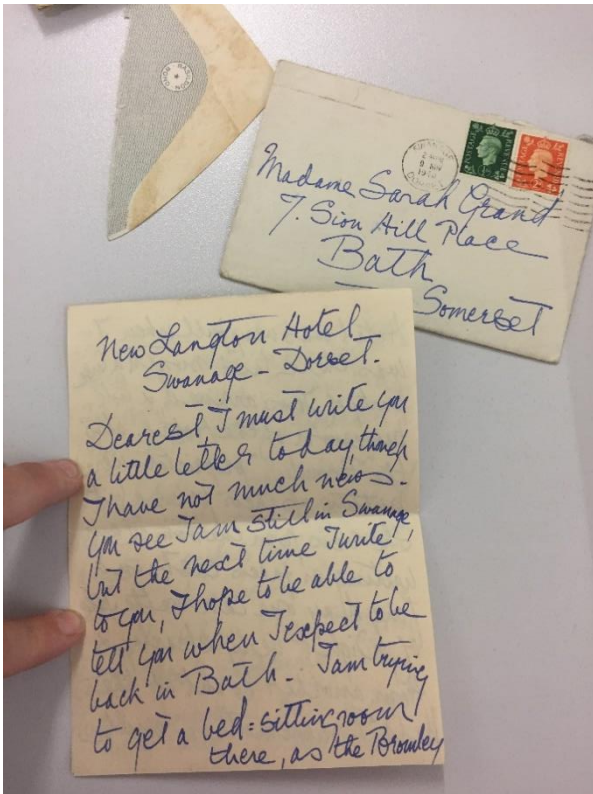 Madame Sarah Grand
7. Sion Hill Place
Bath
Somerset
POSTAGE
POSTAGE
New Langton Hotel
Swanage - Dorset.
Dearest, I must write you
a little letter today, though
I have not much news.
You see I am still in Swanage,
but the next time I write
to you, I hope to be able to
tell you when I expect to be
back in Bath. I am trying
to get a bed=sitting room
there, as the Bromley